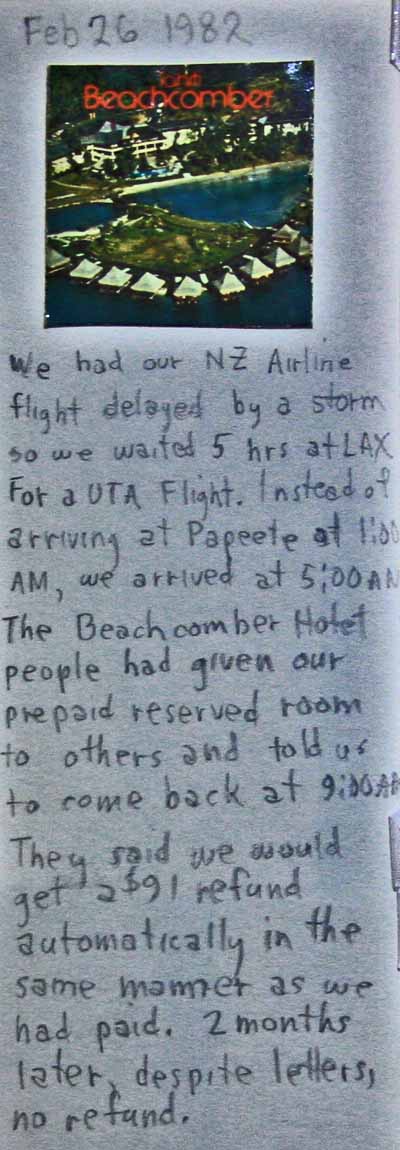 Feb 26 1982
Tahiti
Beachcomber
We had our NZ Airline
flight delayed by a storm
so we waited 5 hrs at LAX
For a UTA Flight. Instead of
arriving at Papeete at 1:00
AM, we arrived at 5:00 AM
The Beachcomber Hotel
people had given our
prepaid reserved room
to others and told us
to come back at 9:00AM
They said we would
get a $91 refund
automatically in the
same manner as we
had paid. 2 months
later, despite letters,
no refund.